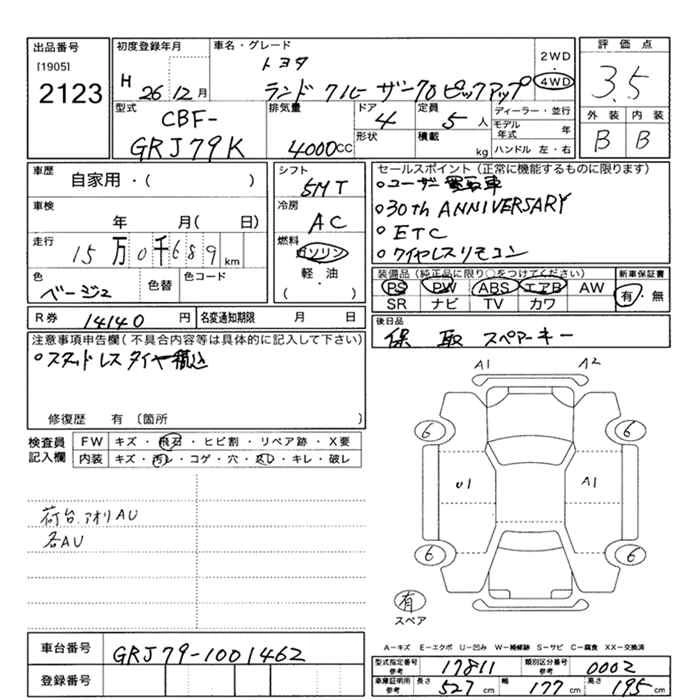 出品番号
[1905]
2123
初度登録年月
H 26年 12月
車名・グレード
トヨタ
ランドクルーザー70ピックアップ
2WD
・
4WD
評価点
3.5
型式
CBF-
GRJ79K
排気量
4000CC
ドア
4
形状
定員
5人
積載
kg
ディーラー・並行
モデル年式 年
ハンドル 左・右
外装 内装
B B
車歴
自家用・( )
車検
年 月( 日)
走行
15万0千689km
色
ベージュ
色替
色コード
シフト
5MT
冷房
AC
燃料
ガソリン
軽・油
( )
セールスポイント(正常に機能するものに限ります)
○ユーザー買取車
○30th ANNIVERSARY
○ETC
○ワイヤレスリモコン
装備品(純正品に限り○をつけてください)
PS PW ABS エアB AW
SR ナビ TV カワ
新車保証書
有・無
R券 14140円
名変通知期限 月 日
後日品
保 取 スペアーキー
注意事項申告欄(不具合内容等は具体的に記入して下さい)
○スタッドレスタイヤ積込
修復歴 有 〔箇所
検査員記入欄
FW キズ・飛石・ヒビ割・リペア跡・X要
内装 キズ・汚レ・コゲ・穴・スレ・キレ・破レ
荷台.アオリAU
各AU
A1 A2
6 6
U1 A1
6 6
有
スペア
A−キズ E−エクボ U−凹み W−補修跡 S−サビ C−腐食 XX−交換済
車台番号 GRJ79-1001462
登録番号
型式指定番号 参考 17811
類別区分番号 参考 0002
車庫証明用 参考 長さ 527cm 幅 177cm 高さ 195cm